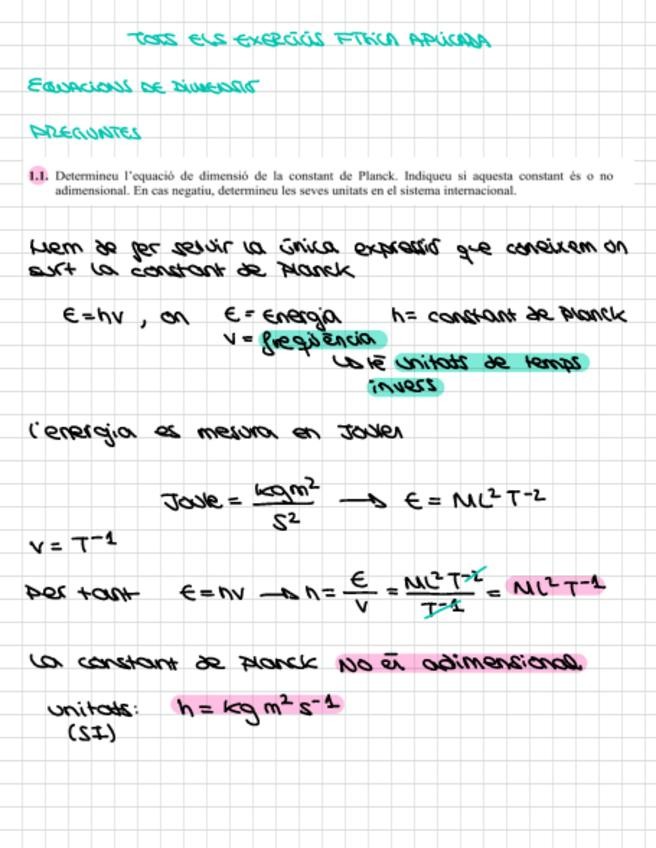 TOTS ELS EXERCICIS FÍSICA APLICADA
EQUACIONS DE DIMENSIÓ
PREGUNTES
1.1. Determineu l'equació de dimensió de la constant de Planck. Indiqueu si aquesta constant és o no
adimensional. En cas negatiu, determineu les seves unitats en el sistema internacional.
Hem de fer servir la única expressió que coneixem on
surt la constant de Planck
E=hν , on E = Energia h= constant de Planck
ν = freqüència
↳ té unitats de temps
invers
L'energia es mesura en Joules
Joule = kgm²/s² → E = ML²T⁻²
ν = T⁻¹
per tant E=hν → h= E/ν = ML²T⁻²/T⁻¹ = ML²T⁻¹
La constant de Planck NO és adimensional.
unitats: h = kg m² s⁻¹
(SI)